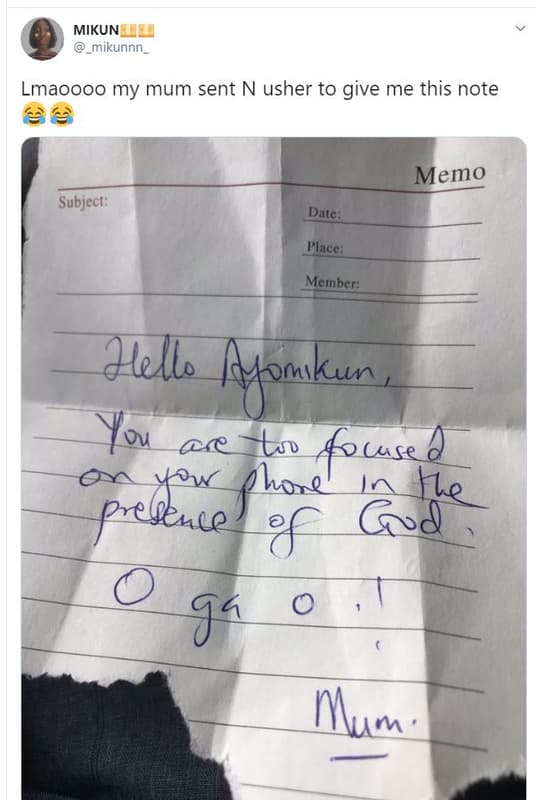 MIKUN
@_mikunnn_
Lmaoooo my mum sent N usher to give me this note
😂😂
Memo
Subject:
Date:
Place:
Member:
Hello Ayomikun,
You are too focused
on your phone in the
presence of God.
O ga o .!
Mum.